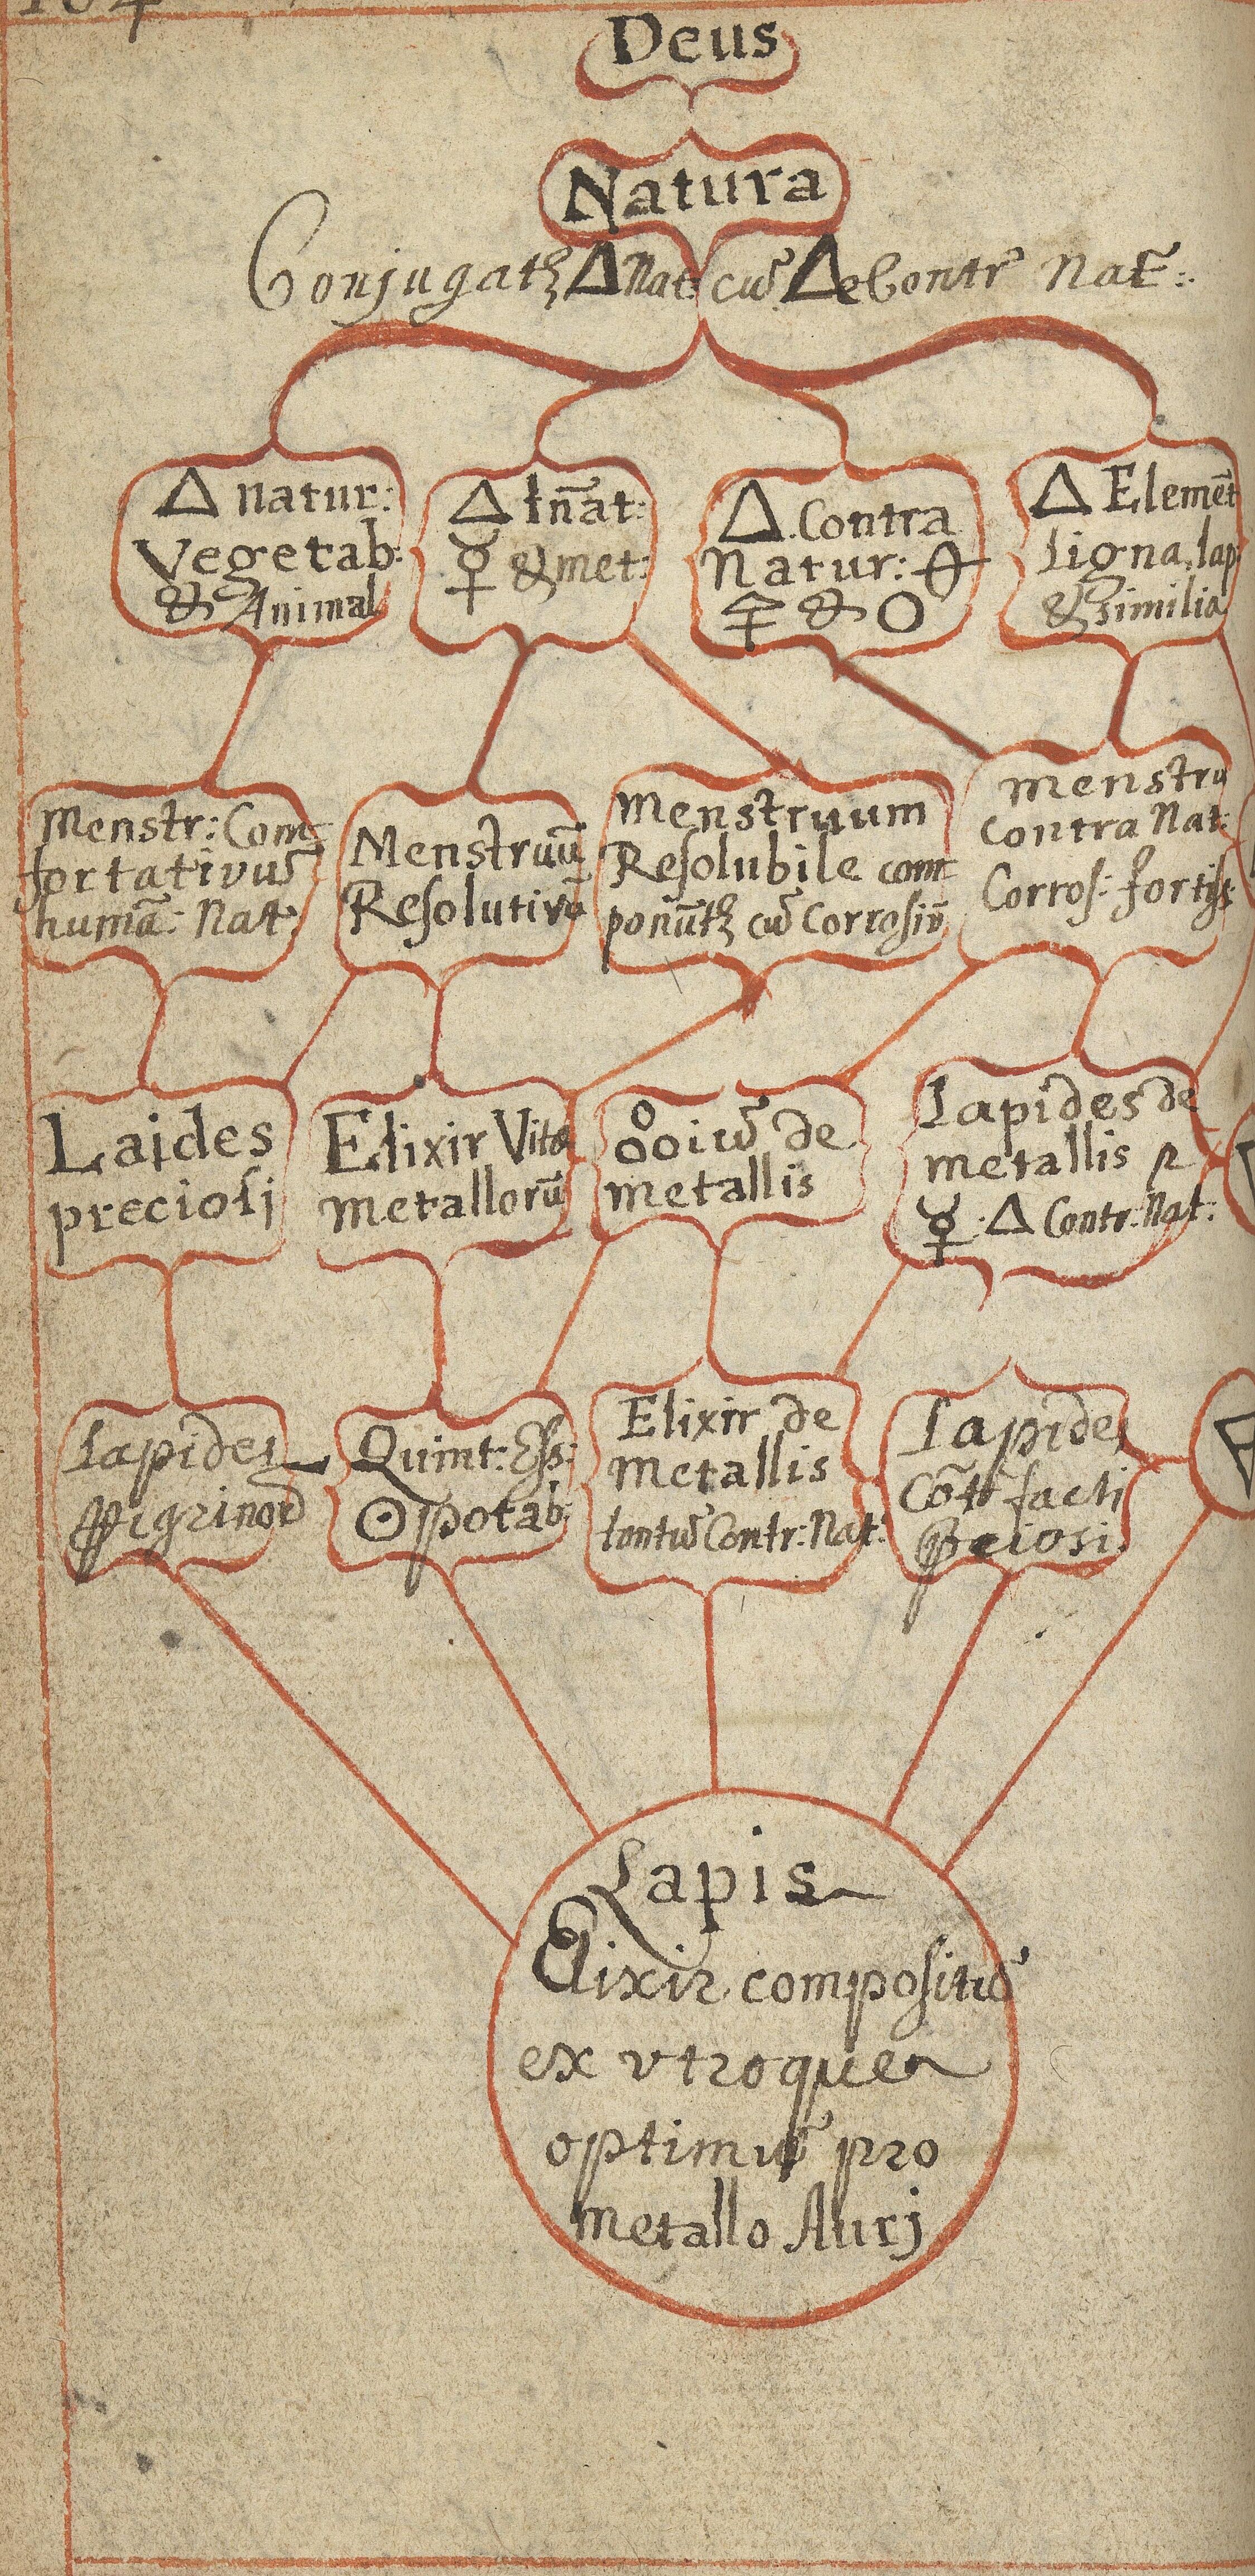 Deus
Natura
Conjugatꝫ △ Nat cū △e Contr Nat̄:.
△ natur:
Vegetab:
& Animal
△ In̄at:
☿ & met:
△. Contra
Natur:
& ○
△ Elemēt
Ligna, lap
& similia
Menstr: Com-
fortativū
humā: Nat:
Menstruū
Resolutivū
Menstruum
Resolubile com-
ponūtꝫ cū Corrosiv̄
Menstru
contra Nat:
Corros: fortiss:
Laides
preciosi
Elixir Vitæ
Metallorū
de
metallis
Lapides de
metallis
☿ . △ Contr: Nat:
Lapides
Quint: Ess:
☉ potab:
Elixir de
Metallis
tantū Contr: Nat:
Lapides
facti
Lapis
Elixir compositū
ex vtroque
optimū pro
metallo Aurj